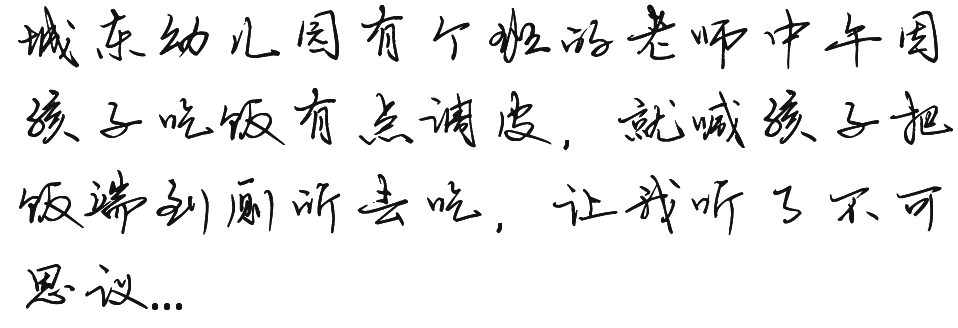 城东幼儿园有个班的老师中午因
孩子吃饭有点调皮，就喊孩子把
饭端到厕所去吃，让我听了不可
思议...